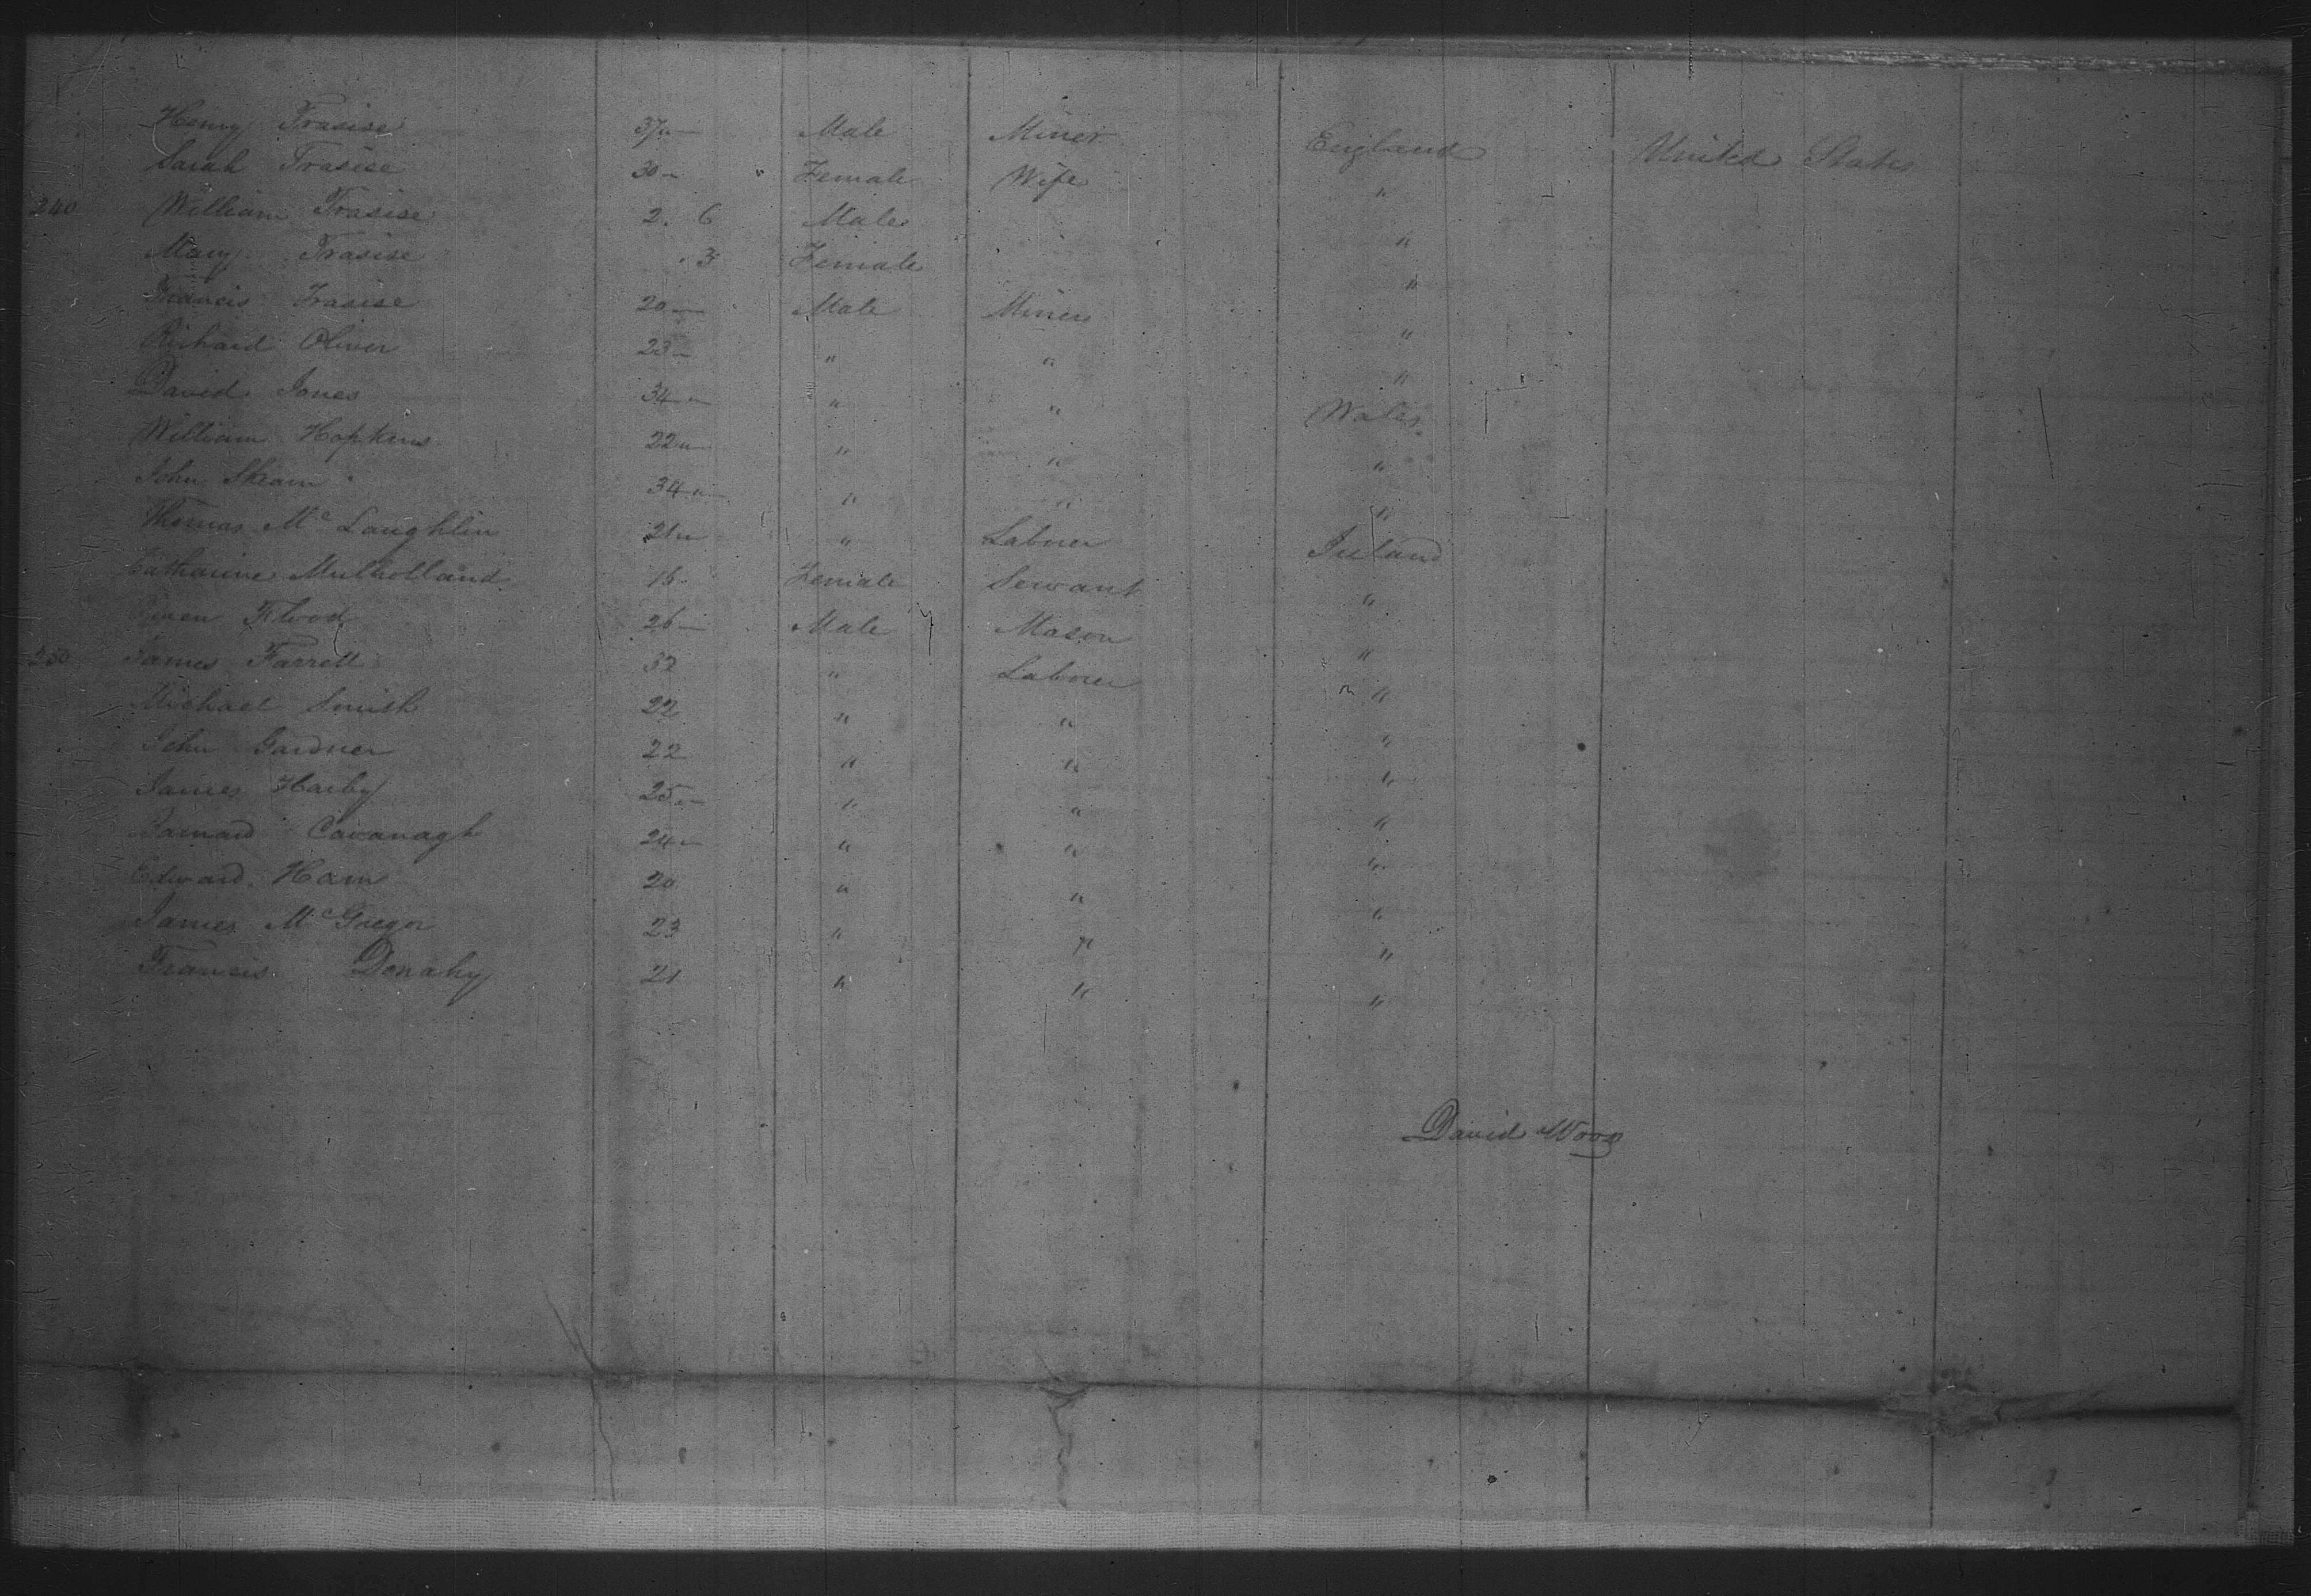 Henry Trasise 37 " — Male Miner England United States
Sarah Trasise 30 " " Female Wife "
240 William Trasise 2. 6 Male "
Mary Trasise . 3 Female "
Francis Trasise 20 — Male Miner "
Richard Oliver 23 " " " "
David Jones 34 " " " Wales
William Hopkins 22 " " " "
John Skeam 34 " " " "
Thomas Mc Laughlin 21 " " Laborer Ireland
Catharine Mulholland 16 Female Servant "
Owen Flood 26 — Male Mason "
250 James Farrell 32 " Laborer "
Michael Smith 22 " " "
John Gardner 22 " " "
James Harby 25 " " " "
Barnard Cavanagh 24 " " " "
Edward Ham 20 " " "
James Mc Gregor 23 " " "
Francis Donahy 21 " " "
David Wood